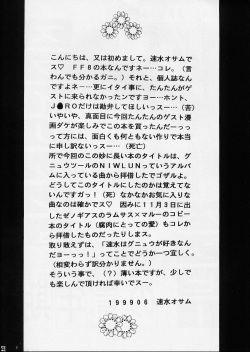 こんにちは、又は初めまして。速水オサムで
ス♡　FF8の本なんですネー…コレ。（言
わんでも分かるガニ。）それと、個人誌なん
ですよネー…更にイタイ事に、たんたんがゲス
トに来られなかったンですヨー…ホント、
J●ROだけは勘弁してほしいッスー…（苦）
いやいや、真面目に今回たんたんのゲスト漫
画ダケが楽しみでこの本を買ったんだーッっ
って方には、面白くも何ともない作りで本当
に申し訳ないッスー…（死亡）
所で今回のこの妙に長い本のタイトルは、グ
ニュウツールのNIWLUNっていうアルバ
ムに入っている曲から拝借したでゴザルよ。
どうしてこのタイトルにしたのかは覚えてな
いんですガっ！（死）なかなかお気に入りな
曲なのは確かでス♡　因みに11月3日に出
したゼノギアスのラムサス×マルーのコピー
本のタイトル（腐肉にとっての愛）もコレか
ら拝借したものだったりしまス。
取り敢えずは、「速水はグニュウが好きなん
だヨーっっ！」ってことでどうか一つ宜しく。
（相変わらず訳分かりません。）
そういう事で、（？）薄い本ですが、少しで
も楽しんで頂ければ幸いでスー。
199906　速水オサム